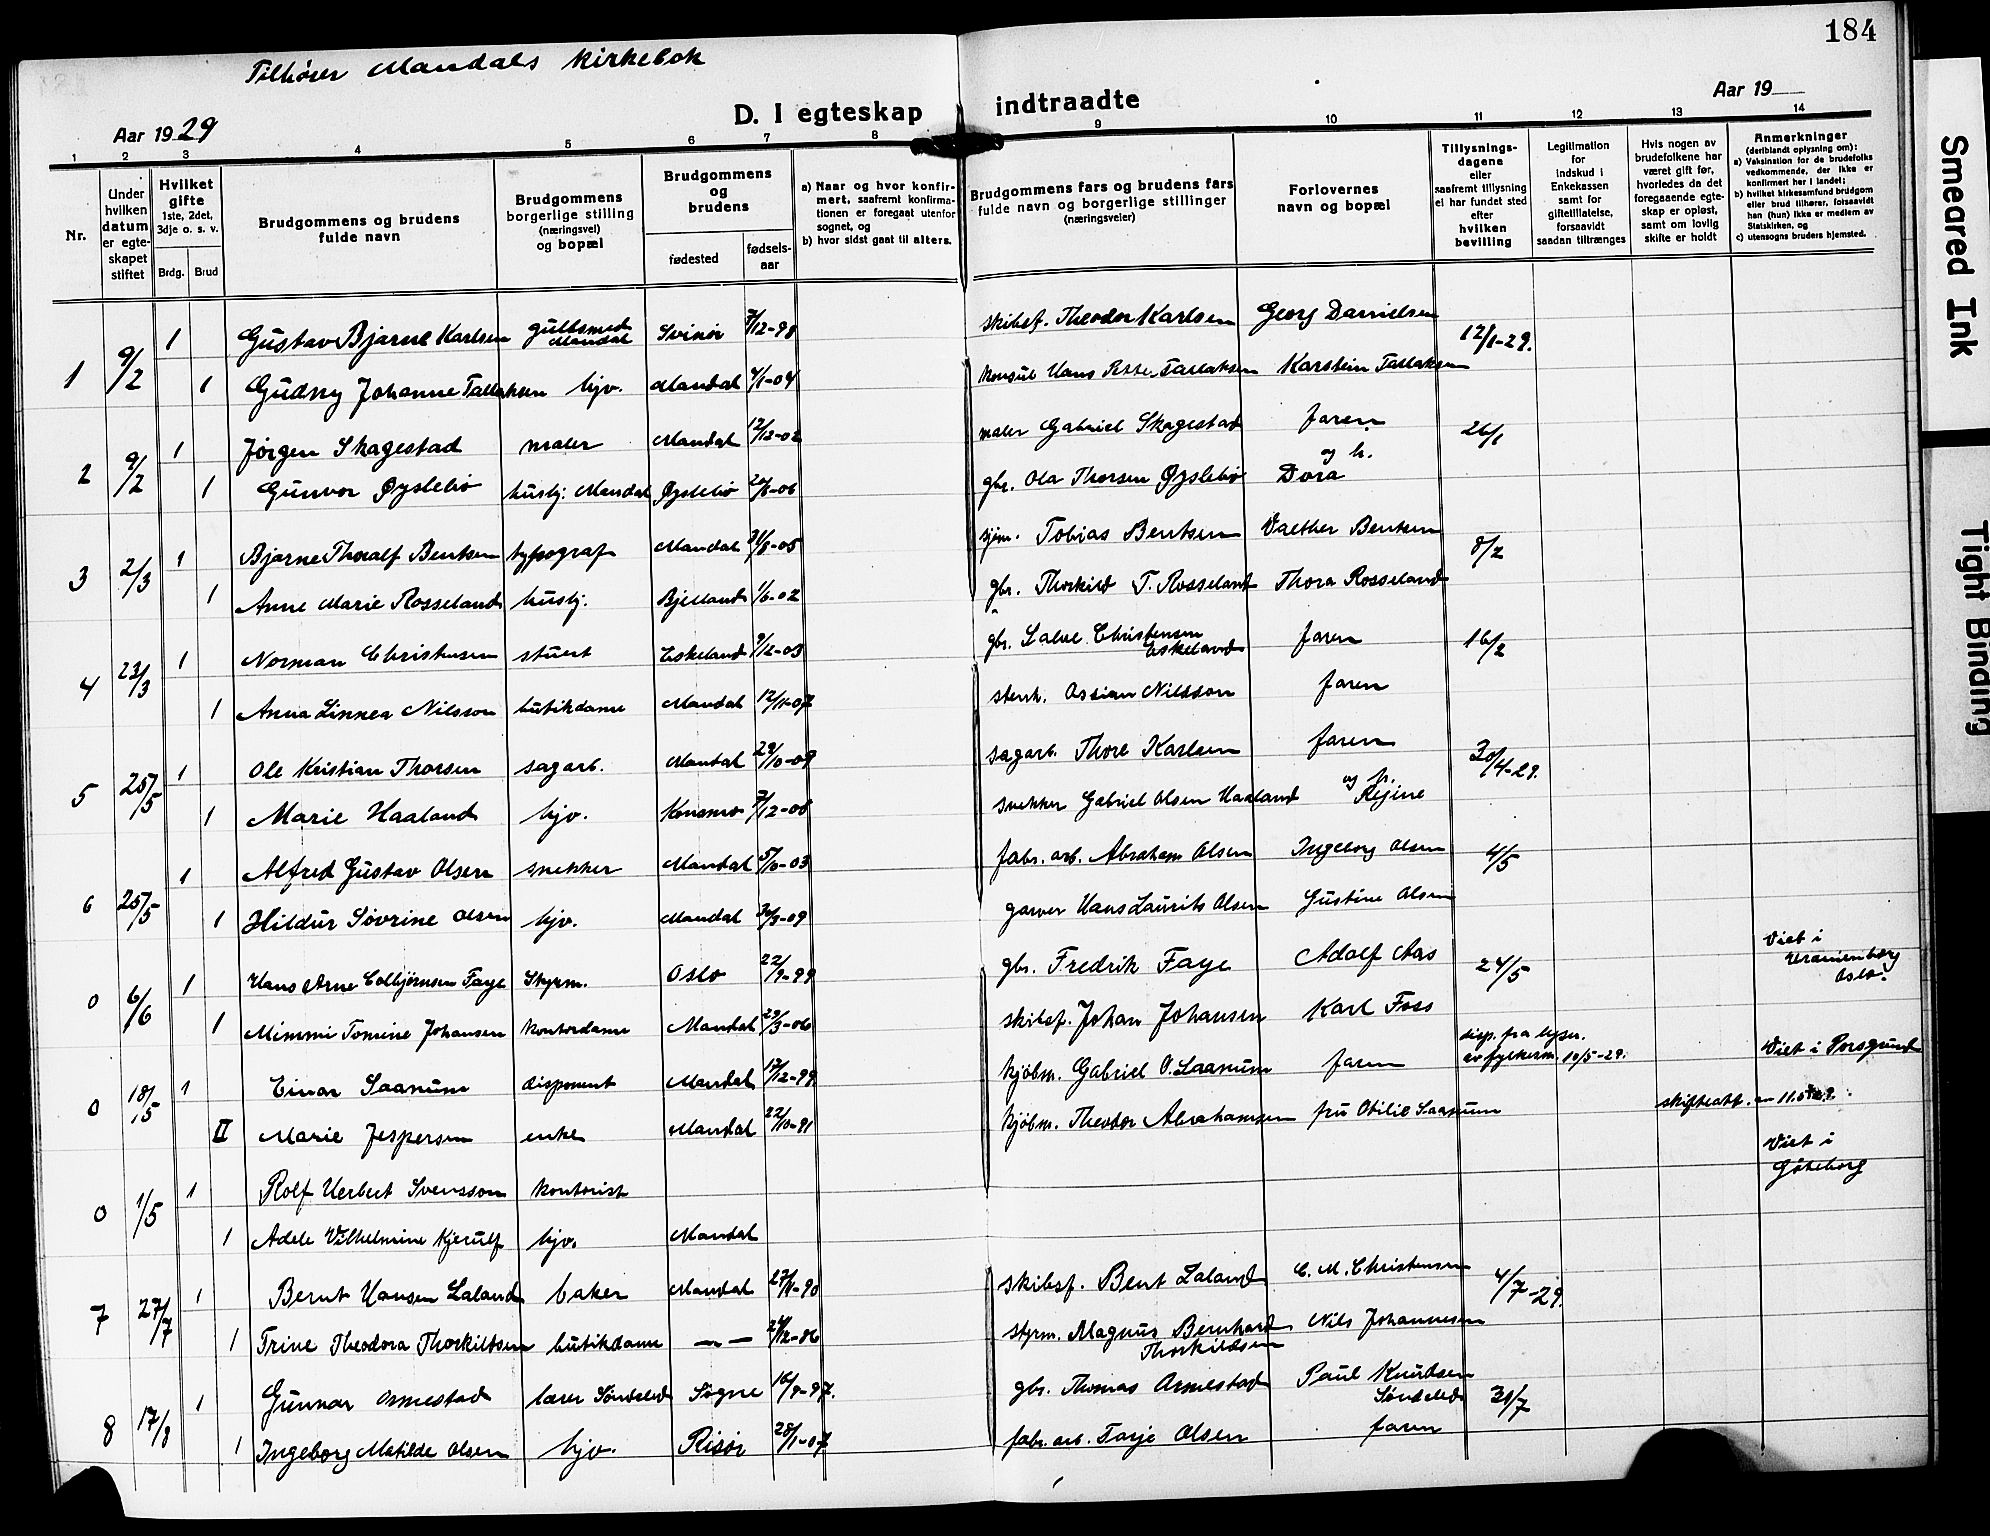 184
Tilhører Mandals Kirkebok
D. I egteskap indtraadte
Aar 1929
Aar 19
1 2 3 4 5 6 7 8 9 10 11 12 13 14
Nr.
Under hvilken datum er egteskapet stiftet
Hvilket gifte 1ste, 2det, 3dje o. s. v.
Brdg. Brud
Brudgommens og brudens fulde navn
Brudgommens borgerlige stilling (næringsvei) og bopæl
Brudgommens og brudens
fødested
fødselsaar
a) Naar og hvor konfirmert, saafremt konfirmationen er foregaat utenfor sognet, og
b) hvor sidst gaat til alters.
Brudgommens fars og brudens fars fulde navn og borgerlige stillinger (næringsveier)
Forlovernes navn og bopæl
Tillysningsdagene eller saafremt tillysning ei har fundet sted efter hvilken bevilling
Legitimation for indskud i Enkekassen samt for giftetilladelse, forsaavidt saadan tiltrænges
Hvis nogen av brudefolkene har været gift før, hvorledes da det foregaaende egteskap er opløst, samt om lovlig skifte er holdt
Anmerkninger (deriblandt oplysning om):
a) Vaksination for de brudefolks vedkommende, der ikke er konfirmert her i landet;
b) hvilket kirkesamfund brudgom eller brud tilhører, forsaavidt han (hun) ikke er medlem av Statskirken, og
c) utensogns bruders hjemsted.
1 9/2 1 Gustav Bjarne Karlsen gullsmed Mandal Svinør 7/12-98 skibsf. Theodor Karlsen Georg Danielsen 12/1-29.
1 Gudny Johanne Tallaksen hjv. Mandal 4/1-04 konsul Hans Petter Tallaksen Karstein Tallaksen
2 9/2 1 Jørgen Skagestad maler Mandal 12/12-02 maler Gabriel Skagestad faren 26/1
1 Gunvor Øyslebø husbj. Mandal Øyslebø 20/6-06 gbr. Ola Thorsen Øyslebø og h. Dora
3 2/3 1 Bjarne Thoralf Bentsen typograf Mandal 31/8-05 sjøm. Tobias Bentsen Valther Bentsen 8/2
1 Anne Marie Rosseland husbj. Bjelland 1/6-02 gbr. Thorkild T. Rosseland Thora Rosseland
4 23/3 1 Norman Christensen stuert Eskeland 9/12-03 gbr. Salve Christensen Eskeland faren 16/2
1 Anna Linnea Nilsson butikdame Mandal 12/11-07 stenh. Ossian Nilsson faren
5 25/5 1 Ole Kristian Thorsen sagarb. Mandal 29/10-09 sagarb. Thore Karlsen faren 30/4-29.
1 Marie Haaland hjv. Konsmo 7/12-08 snekker Gabriel Olsen Haaland og fr. Regine
6 25/5 1 Alfred Gustav Olsen snekker Mandal 5/10-03 fabr. arb. Abraham Olsen Ingeborg Olsen 4/5
1 Hildur Søvrine Olsen hjv. Mandal 30/3-09 garver Hans Laurits Olsen Gustine Olsen
0 6/6 1 Hans Arne Colbjørnsen Faye Styrm. Oslo 22/9-99 gbr. Fredrik Faye Adolf Aas 24/5 Viet i Uranienborg Oslo.
1 Mimmi Tomine Johansen kontordame Mandal 29/3-06 skibsf. Johan Johansen Karl Foss
0 18/5 1 Einar Saanum disponent Mandal 17/12-99 kjøbm. Gabriel V. Saanum faren disp. fra lysn. av fylkesm. 10/5-29. Viet i Porsgrund
II Marie Jespersen enke Mandal 22/10-91 kjøbm. Theodor Abrahamsen fru Otilie Saanum skifteatt.
0 1/5 1 Rolf Herbert Svensson kontorist Viet i Gøteborg
1 Adele Vilhelmine Kjerulf hjv. Mandal
7 27/7 1 Bernt Hansen Laland baker Mandal 27/8-90 skibsf. Bent Laland C. M. Christensen 4/7-29.
1 Trine Theodora Thorkildsen butikdame — — 24/12-86 styrm. Magnus Bernhard Thorkildsen Nils Johannesen
8 17/8 1 Gunnar Omestad lærer Søndeled Søgne 16/9-97. gbr. Thomas Omestad Paul Knudsen Søndeled 30/7
1 Ingeborg Matilde Olsen hjv. Risør 28/1-07 fabr. arb. Tarje Olsen faren
Smeared Ink
Tight Binding